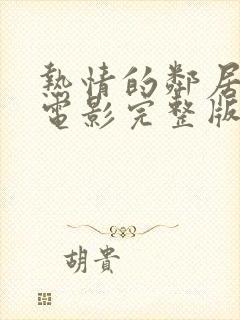 熱情的鄰居
電影完整版
胡貴